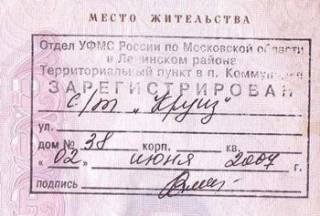 МЕСТО ЖИТЕЛЬСТВА
Отдел УФМС России по Московской области
в Ленинском районе
Территориальный пункт в п. Коммунарка
ЗАРЕГИСТРИРОВАН
с/т "Круиз"
ул.
дом № 38 корп. кв.
"02" июня 2007 г.
подпись